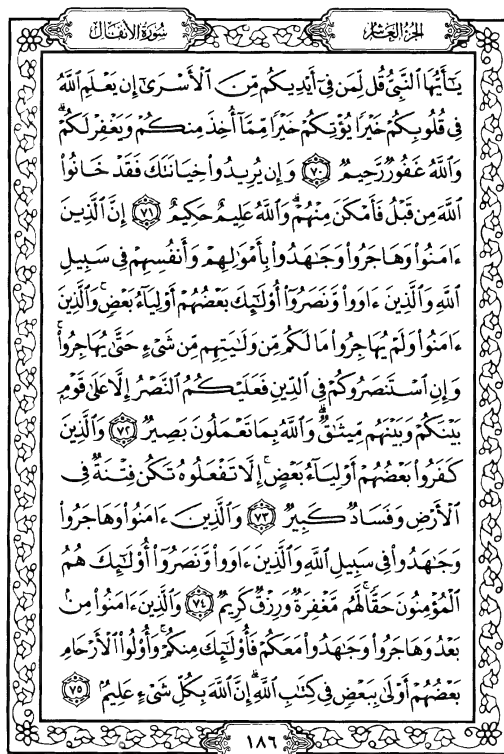 سُورَةُ الأَنفَال
الجُزْءُ العَاشِرُ
يَٰٓأَيُّهَا ٱلنَّبِىُّ قُل لِّمَن فِىٓ أَيْدِيكُم مِّنَ ٱلْأَسْرَىٰٓ إِن يَعْلَمِ ٱللَّهُ
فِى قُلُوبِكُمْ خَيْرًا يُؤْتِكُمْ خَيْرًا مِّمَّآ أُخِذَ مِنكُمْ وَيَغْفِرْ لَكُمْ ۗ
وَٱللَّهُ غَفُورٌ رَّحِيمٌ ٧٠ وَإِن يُرِيدُوا۟ خِيَانَتَكَ فَقَدْ خَانُوا۟
ٱللَّهَ مِن قَبْلُ فَأَمْكَنَ مِنْهُمْ ۗ وَٱللَّهُ عَلِيمٌ حَكِيمٌ ٧١ إِنَّ ٱلَّذِينَ
ءَامَنُوا۟ وَهَاجَرُوا۟ وَجَٰهَدُوا۟ بِأَمْوَٰلِهِمْ وَأَنفُسِهِمْ فِى سَبِيلِ
ٱللَّهِ وَٱلَّذِينَ ءَاوَوا۟ وَّنَصَرُوٓا۟ أُو۟لَٰٓئِكَ بَعْضُهُمْ أَوْلِيَآءُ بَعْضٍ ۚ وَٱلَّذِينَ
ءَامَنُوا۟ وَلَمْ يُهَاجِرُوا۟ مَا لَكُم مِّن وَلَٰيَتِهِم مِّن شَىْءٍ حَتَّىٰ يُهَاجِرُوا۟ ۚ
وَإِنِ ٱسْتَنصَرُوكُمْ فِى ٱلدِّينِ فَعَلَيْكُمُ ٱلنَّصْرُ إِلَّا عَلَىٰ قَوْمٍۭ
بَيْنَكُمْ وَبَيْنَهُم مِّيثَٰقٌ ۗ وَٱللَّهُ بِمَا تَعْمَلُونَ بَصِيرٌ ٧٢ وَٱلَّذِينَ
كَفَرُوا۟ بَعْضُهُمْ أَوْلِيَآءُ بَعْضٍ ۚ إِلَّا تَفْعَلُوهُ تَكُن فِتْنَةٌ فِى
ٱلْأَرْضِ وَفَسَادٌ كَبِيرٌ ٧٣ وَٱلَّذِينَ ءَامَنُوا۟ وَهَاجَرُوا۟
وَجَٰهَدُوا۟ فِى سَبِيلِ ٱللَّهِ وَٱلَّذِينَ ءَاوَوا۟ وَّنَصَرُوٓا۟ أُو۟لَٰٓئِكَ هُمُ
ٱلْمُؤْمِنُونَ حَقًّا ۚ لَّهُم مَّغْفِرَةٌ وَرِزْقٌ كَرِيمٌ ٧٤ وَٱلَّذِينَ ءَامَنُوا۟ مِنۢ
بَعْدُ وَهَاجَرُوا۟ وَجَٰهَدُوا۟ مَعَكُمْ فَأُو۟لَٰٓئِكَ مِنكُمْ ۚ وَأُو۟لُوا۟ ٱلْأَرْحَامِ
بَعْضُهُمْ أَوْلَىٰ بِبَعْضٍ فِى كِتَٰبِ ٱللَّهِ ۗ إِنَّ ٱللَّهَ بِكُلِّ شَىْءٍ عَلِيمٌۢ ٧٥
١٨٦